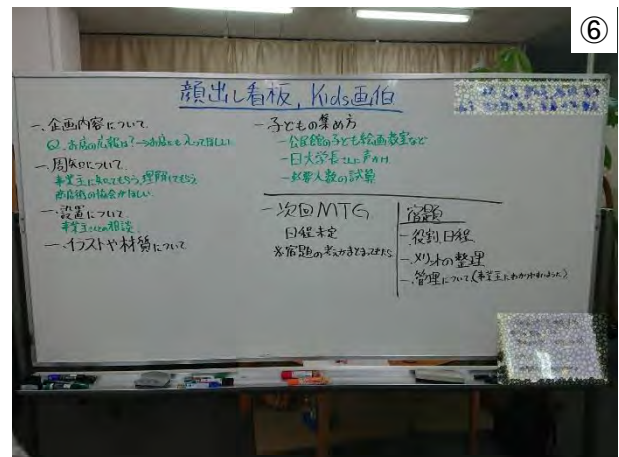 ⑥
顔出し看板, Kids画伯
一、企画内容について
Q. お店の広報は?→お店にも入ってほしい
一、周知について
事業主に知ってもらう, 理解してもらう
商店街の協会がほしい
一、設置について
事業主さんとの相談
一、イラストや材質について
一 子どもの集め方
一公民館の子ども絵画教室など
一日大学長さんに声かけ
一必要人数の試算
一 次回MTG
日程未定
※宿題の考えがまとまってきたら
宿題
一役割, 日程
一メリットの整理
一管理について(事業主にわかりやすいように)